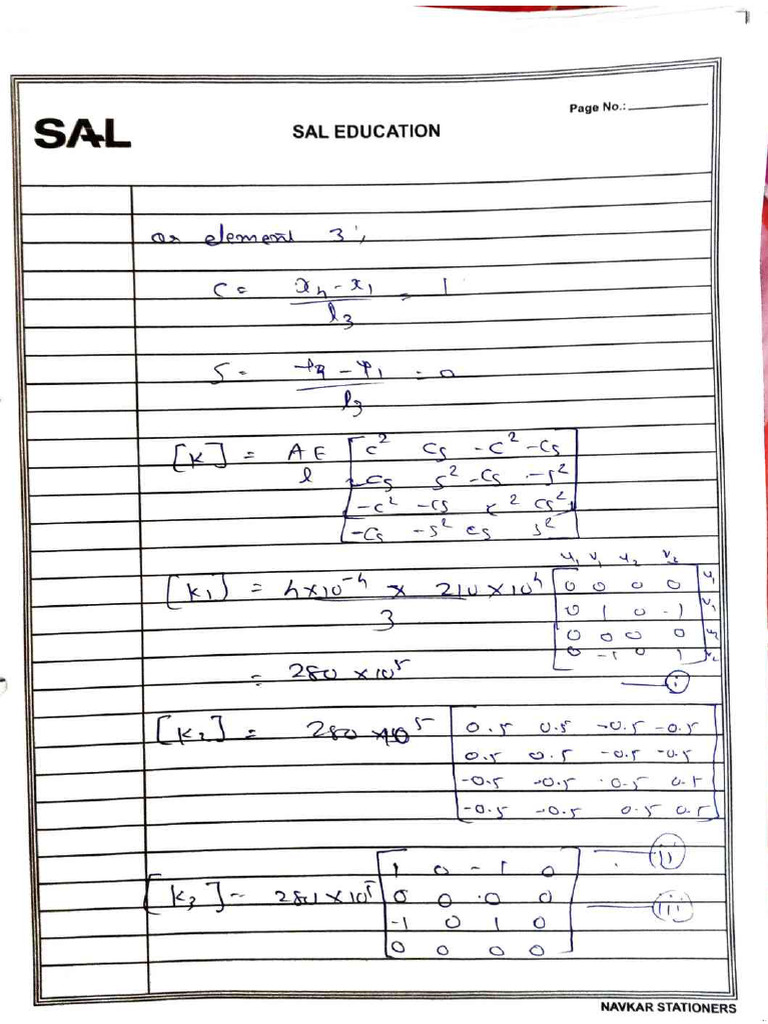 Page No.:
SAL
SAL EDUCATION
or element 3,
C = x4 - x1 / l3 = 1
S = y4 - y1 / l3 = 0
[K] = AE / l [ c² cs -c² -cs
cs s² -cs -s²
-c² -cs c² cs²
-cs -s² cs s² ]
u1 v1 u2 v2
[K1] = 4×10⁻⁴ × 210×10⁴ / 3 [ 0 0 0 0 u1
0 1 0 -1 v1
0 0 0 0 u2
0 -1 0 1 ] v2
= 280 ×10⁵ — (i)
[K2] = 280 ×10⁵ [ 0.5 0.5 -0.5 -0.5
0.5 0.5 -0.5 -0.5
-0.5 -0.5 0.5 0.5
-0.5 -0.5 0.5 0.5 ]
— (ii)
[K3] = 280 ×10⁵ [ 1 0 -1 0
0 0 0 0
-1 0 1 0
0 0 0 0 ] — (iii)
NAVKAR STATIONERS